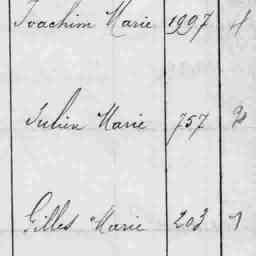 Joachim Marie 1997 4
Julien Marie 757
Gilles Marie 203 1